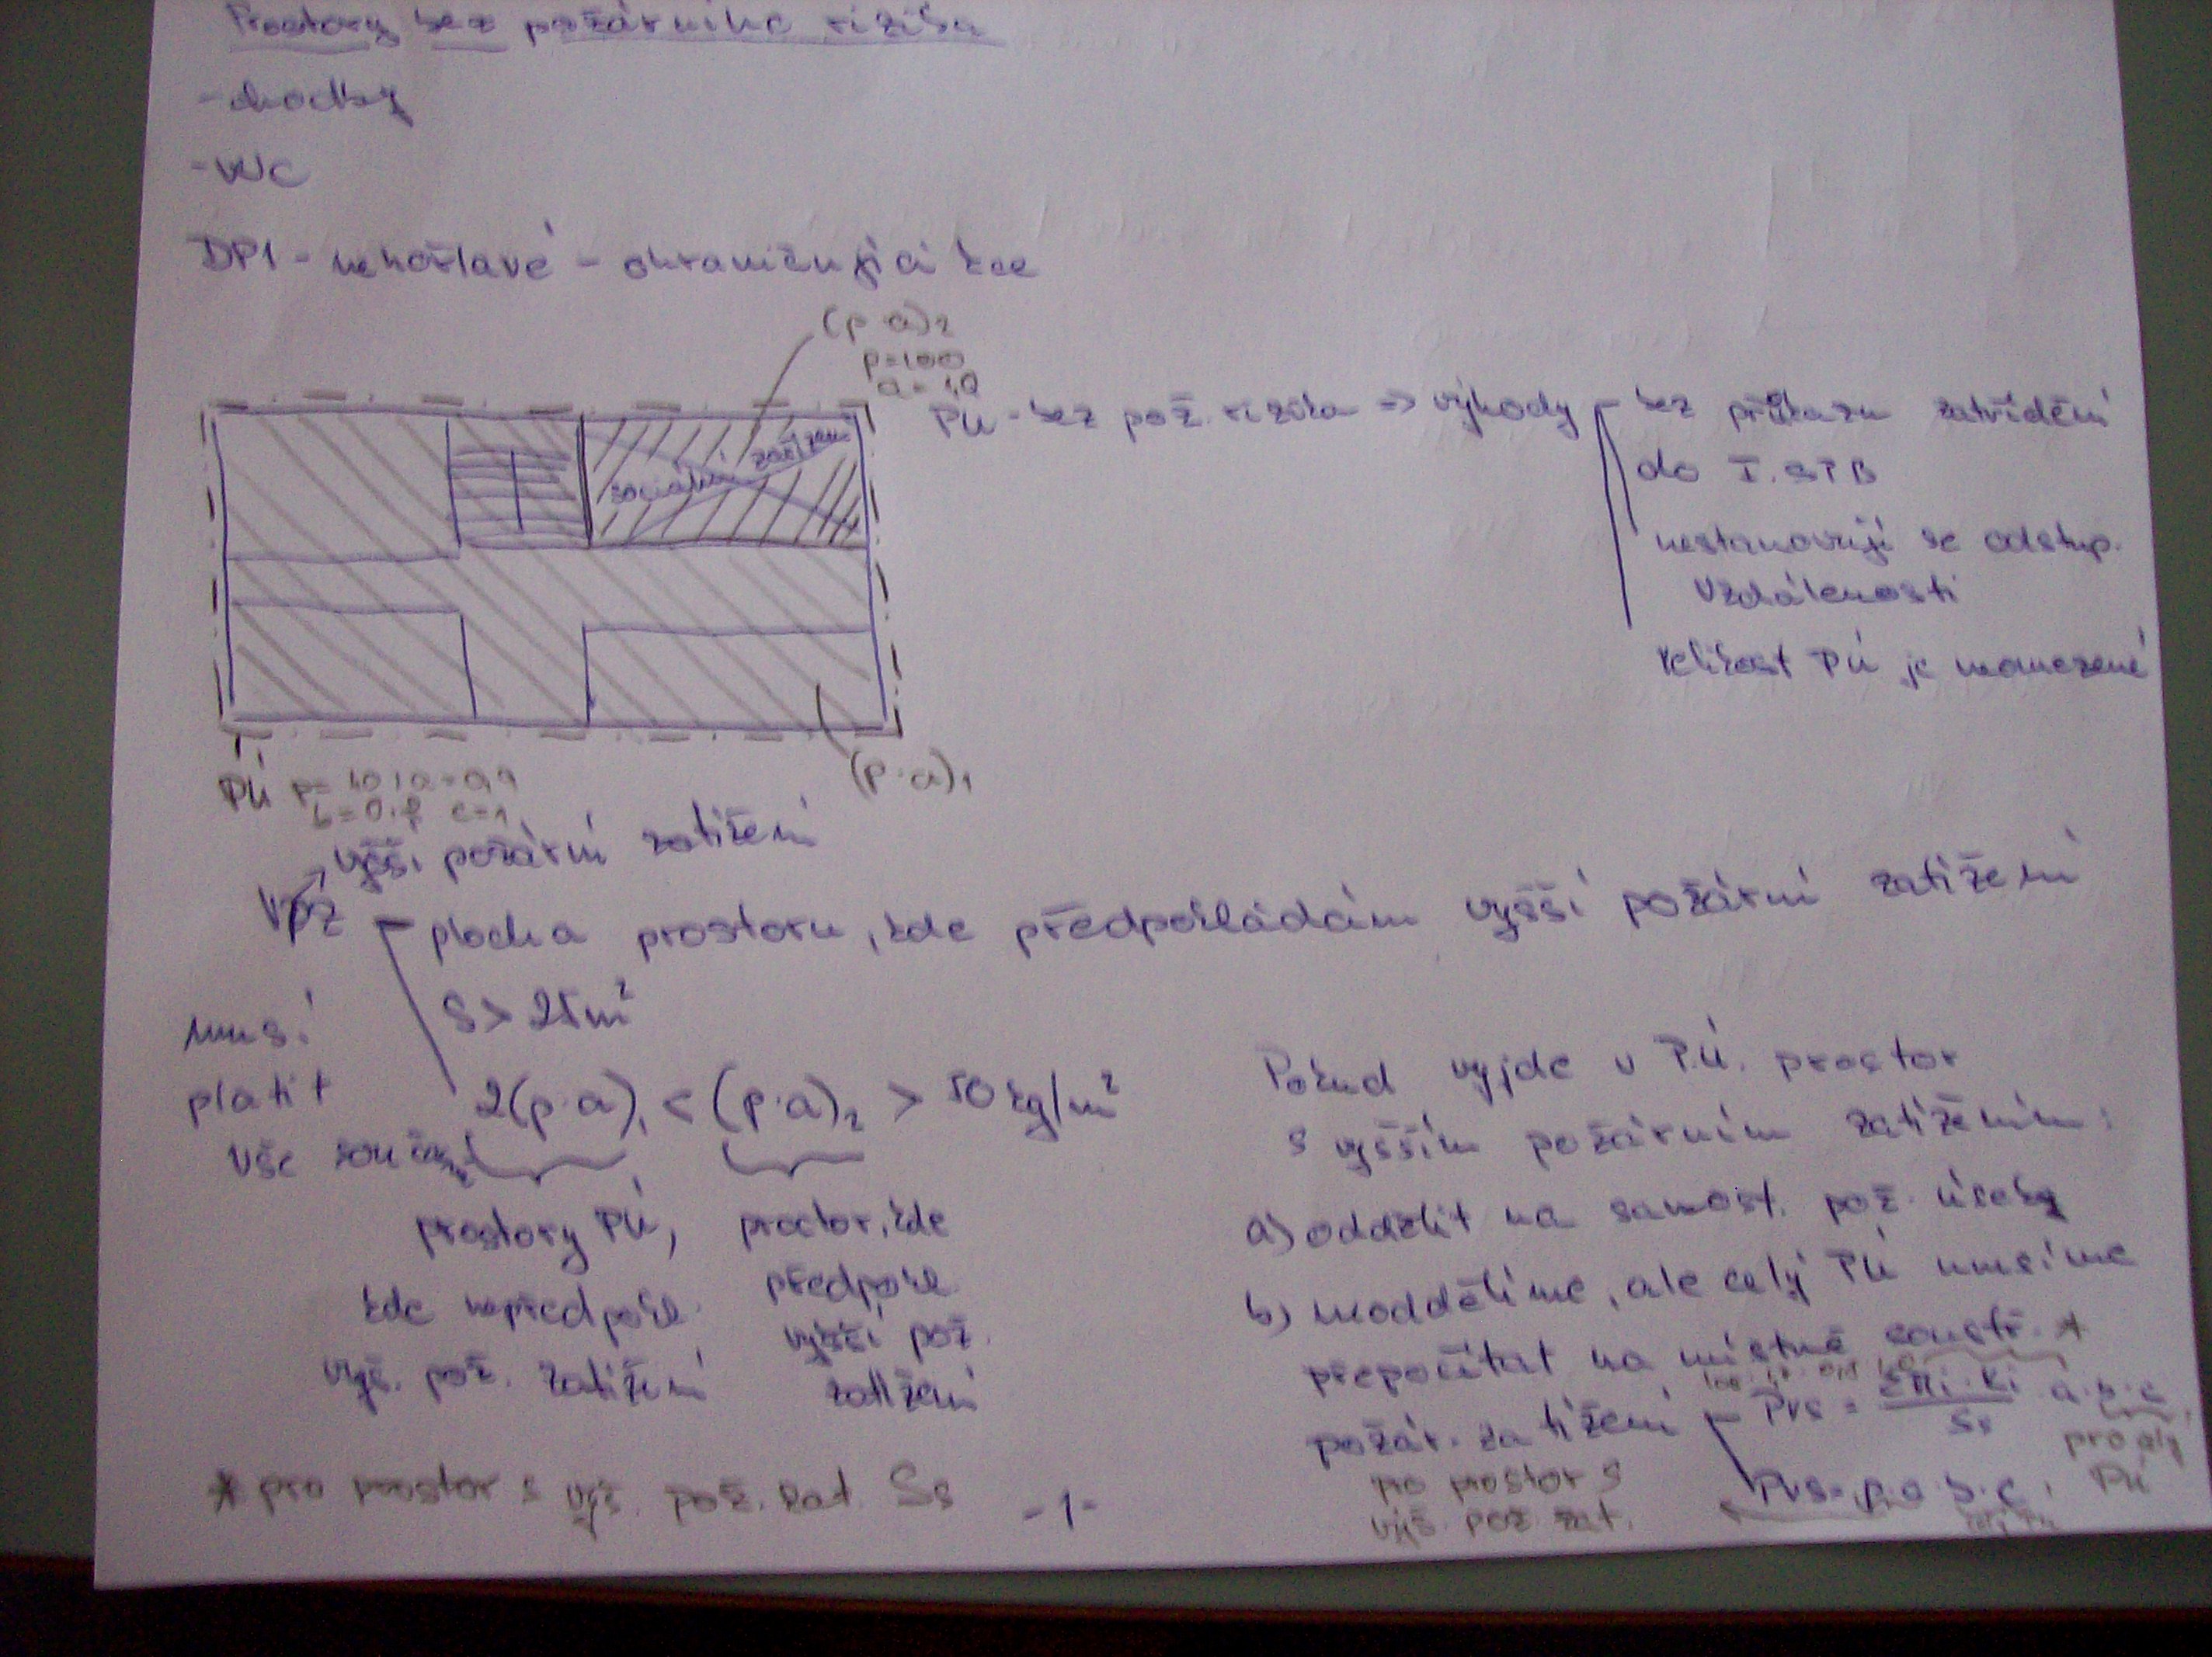 Prostory bez požárního rizika
- chodby
- WC
DP1 - nehořlavé - ohraničující kce
(p·a)₂
p=100
a=1,0
sociální zařízení
PÚ - bez pož. rizika => výhody
bez průkazu zatřídění
do I. SPB
nestanovují se odstup.
vzdálenosti
velikost PÚ je neomezené
(p·a)₁
PÚ p=40; a=0,9
c=1
vyšší požární zatížení
VPZ
plocha prostoru, kde předpokládám vyšší požární zatížení
S > 25m²
musí
platit
vše současně
2(p·a)₁ < (p·a)₂ > 50 kg/m²
prostory PÚ,
kde nepředpokl.
vyš. pož. zatížení
prostor, kde
předpokl
vyšší pož.
zatížení
Pokud vyjde v P.Ú. prostor
s vyšším požárním zatížením:
a) oddělit na samost. pož. úseky
b) neoddělíme, ale celý PÚ musíme
přepočítat na místně soustř. *
požár. zatížení
Pvs = ΣMi·Ki / Ss a·b·c
pro celý
PÚ
pro prostor s
vyš. pož. zat.
Pvs = p·a·b·c
* pro prostor s vyš. pož. zat. Ss
-1-